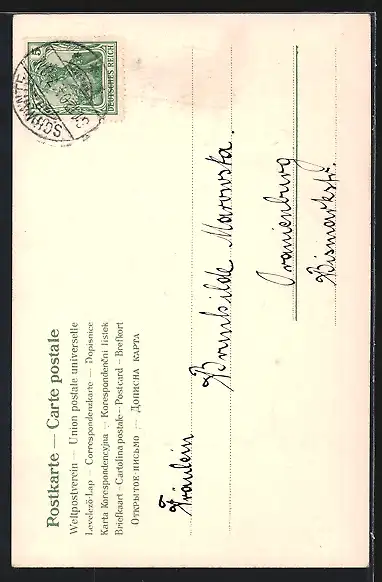 Postkarte — Carte postale
Weltpostverein — Union postale universelle
Levelező-Lap — Correspondenzkarte — Dopisnice
Karta Korespondencyjna — Korespondenční listek
Briefkaart — Cartolina postale — Postcard — Brefkort
Открытое письмо — Дописна карта
5
DEUTSCHES REICH
SCHWANTE
Fräulein
Brunhilde Marowska.
Oranienburg
Bismarkstr.